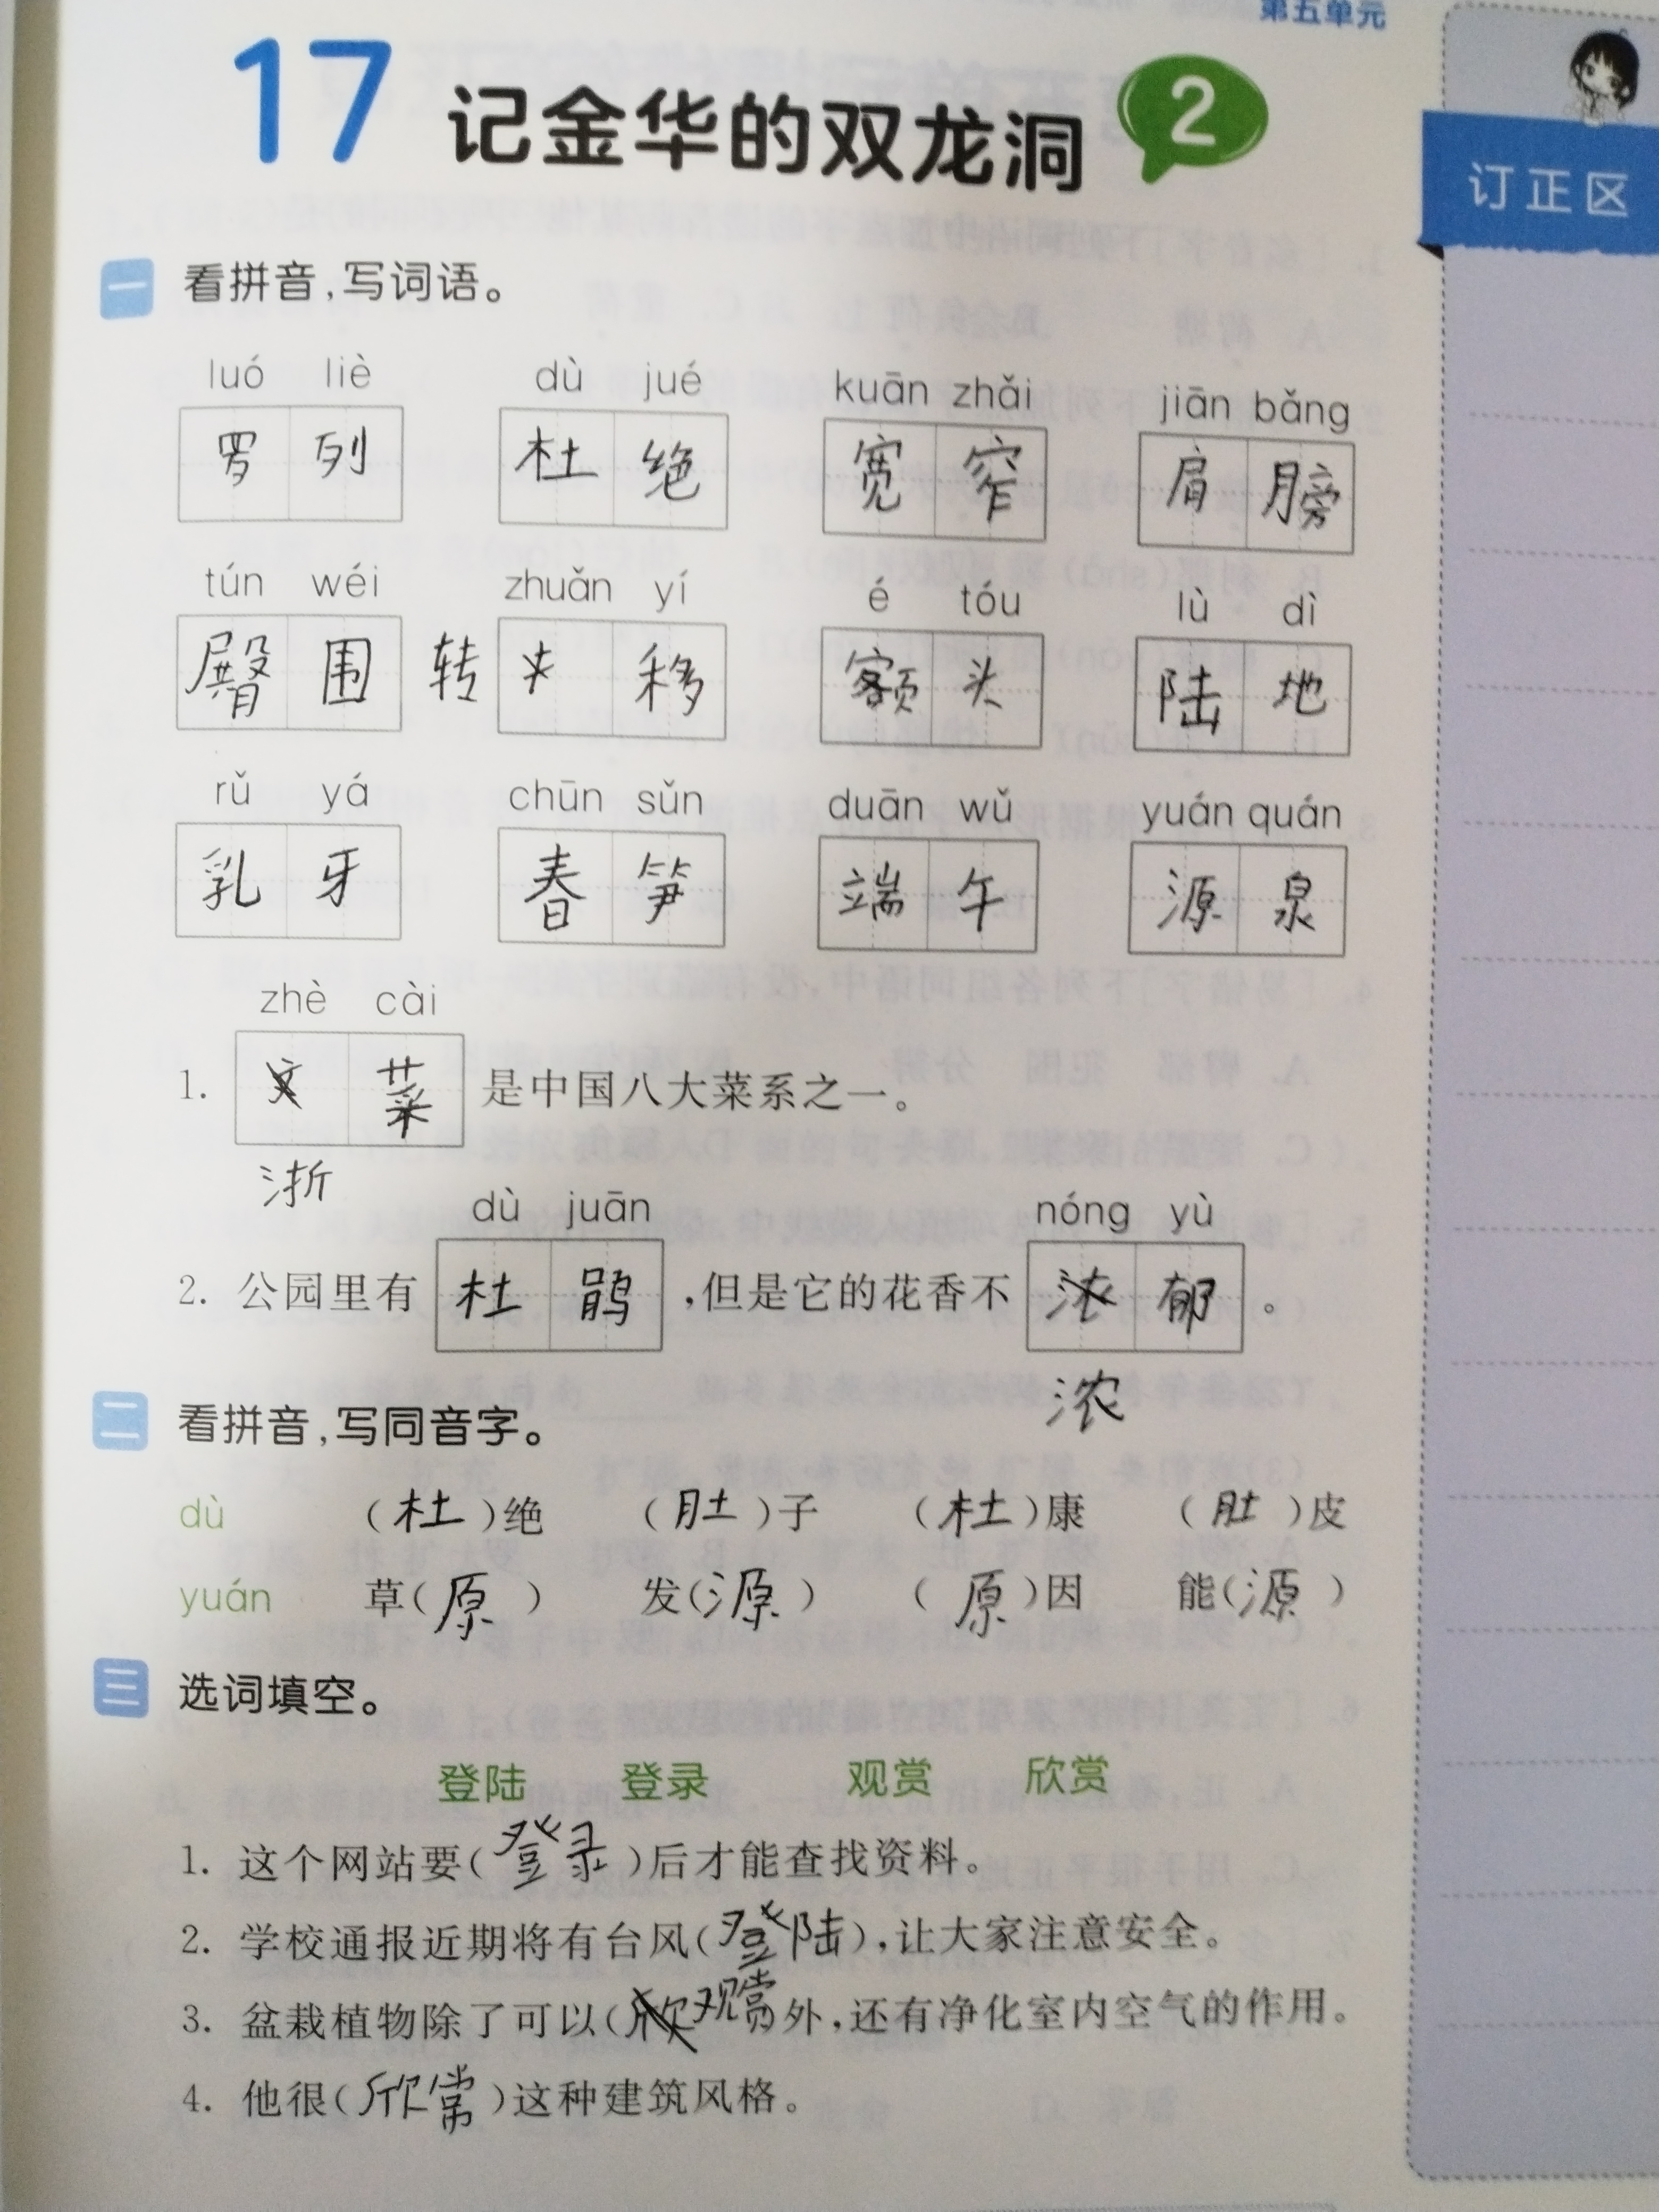 第五单元
17 记金华的双龙洞 2
订正区
一 看拼音,写词语。
luó liè dù jué kuān zhǎi jiān bǎng
罗列 杜绝 宽窄 肩膀
tún wéi zhuǎn yí é tóu lù dì
臀围 转移 额头 陆地
rǔ yá chūn sǔn duān wǔ yuán quán
乳牙 春笋 端午 源泉
zhè cài
1. 菜 是中国八大菜系之一。
浙
dù juān nóng yù
2. 公园里有 杜鹃 ,但是它的花香不 浓郁 。
浓
二 看拼音,写同音字。
dù (杜)绝 (肚)子 (杜)康 (肚)皮
yuán 草(原) 发(源) (原)因 能(源)
三 选词填空。
登陆 登录 观赏 欣赏
1. 这个网站要(登录)后才能查找资料。
2. 学校通报近期将有台风(登陆),让大家注意安全。
3. 盆栽植物除了可以(欣观赏)外,还有净化室内空气的作用。
4. 他很(欣常)这种建筑风格。